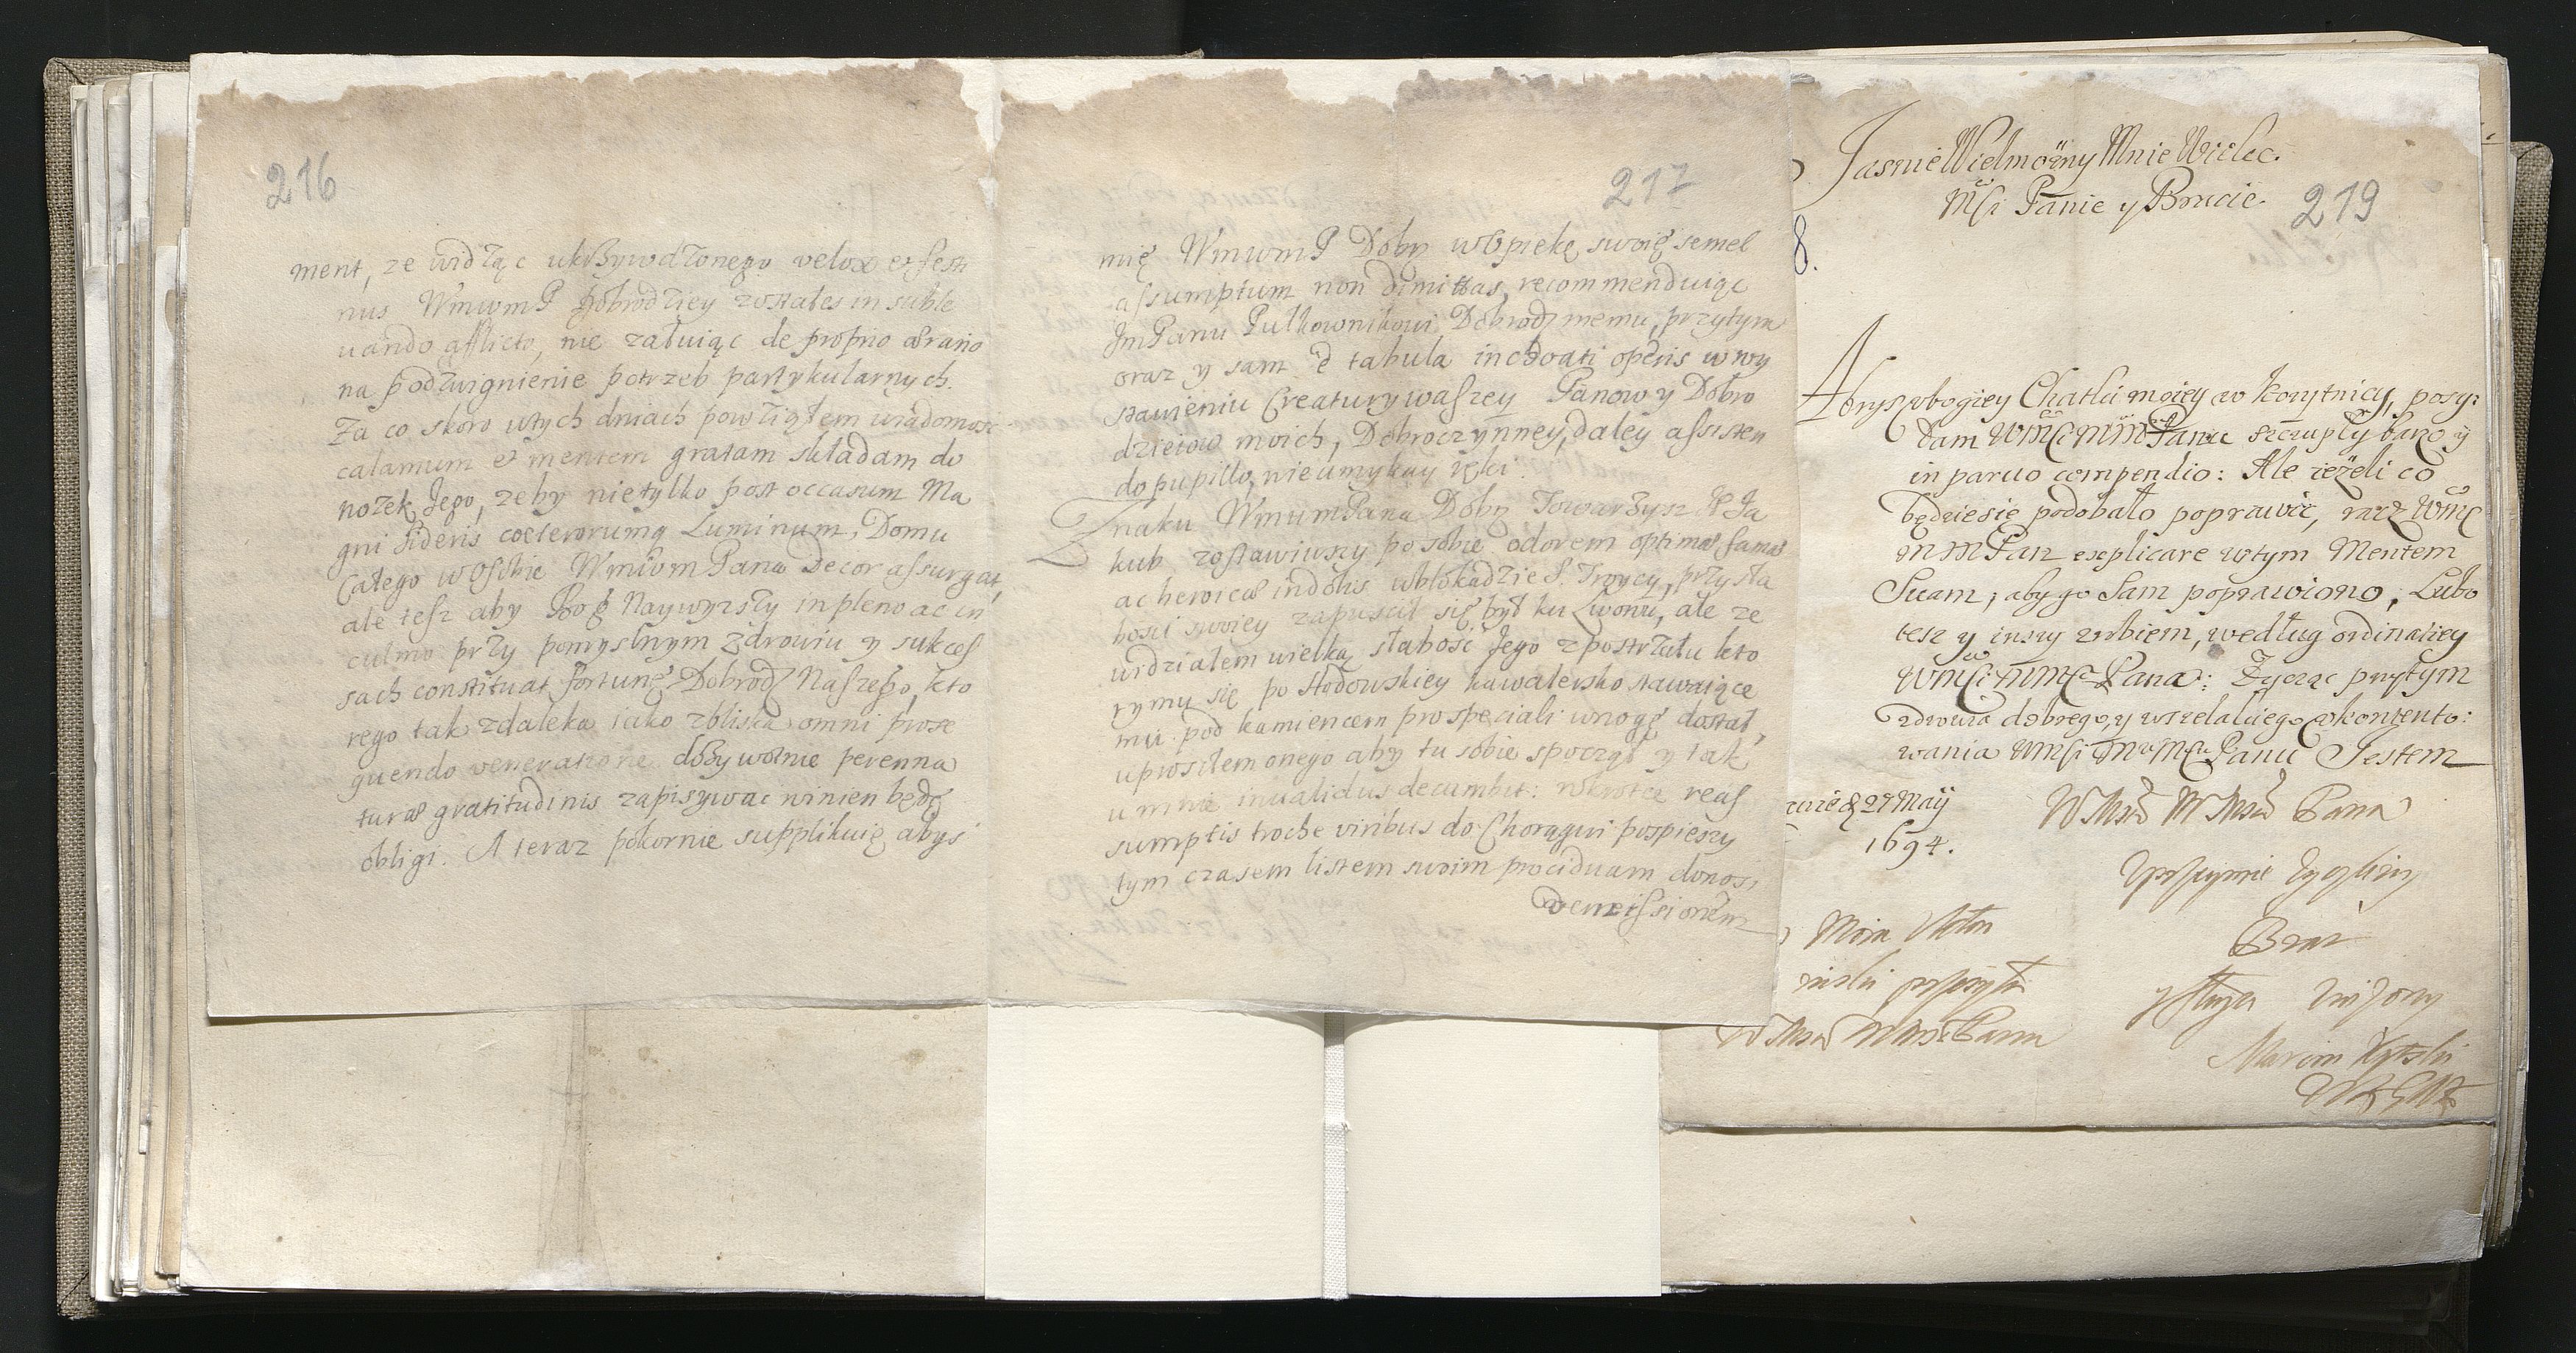 216
ment, ze widząc ukrzywdzonego velox et festi
nus WmwmP Dobrodziey zostałes in suble
uando afflicto, nie załuiąc de proprio ærario
na podzwignienie potrzeb partykularnych.
Za co skoro wtych dniach powziąłem wiadomosc
calamum et mentem gratam składam do
nozek Jego, zeby nietylko post occasum Ma
gni sideris coeterorumq Luminum, Domu
Całego wOsobie WmwmPana Decor assurgat,
ale tesz aby Bog Naywyzszy in pleno ac in
culmo przy pomyslnym Zdrowiu y sukces
sach constituat fortunę Dobrodz Naszego, kto
rego tak zdaleka iako zbliska omni prose
quendo veneratione dozywotnie perenna
turæ gratitudinis zapisywac winien będę
obligi. A teraz pokornie supplikuię abys
217
mię WmwmP Doby wOpiekę swoię semel
assumptum non dimittas, recommenduiąc
JmPanu Pułkownikowi Dobrodz memu, przytym
oraz y sam è tabula inchoati operis wwy
stawieniu Creatury waszey Panow y Dobro
dzieiow moich, Dobroczynney, daley assisten
do pupillo, nieumykay ręki.
Znaku WmwmPana Doby Towarzysz JP Ja
kub zostawiwszy po sobie odorem optimæ famæ
ac heroicæ indolis wblokadzie S. Troycy, przy sła
bosci swoiey zapuscił się był ku Lwowu, ale ze
widziałem wielką słabość Jego zpostrzału kto
rymu się po Hodowskiey kawalersko stawaiące
mu pod kamiencem prospeciali wnogę dostał,
uprosiłem onego aby tu sobie spoczął y tak
u mnie inualidus decumbit: wkrotce reas
sumptis troche viribus do Chorągwi pospieszy
tym czasem listem swoim prociduam donosi
Jasnie Wielmożny Mnie Wielce.
Mści Panie y Bracie.
219
8.
Abrys vbogiey Chatki moiey w Korytnicy, posy:
łam WMści Panu szczupły bardzo y
in paruo compendio: Ale ieżeli co
będzie się podobało poprawić, racz WMść
MM Pan explicare wtym Mentem
Suam, aby go Sam poprawiono, Lubo
tesz y inszy zrobiem, według ordinatiey
WMści MMść Pana: Zycząc przytym
zdrowia dobrego, y wszelakiego vkontento:
wania WMści MMść Panu Jestem
27 Maÿ
1694.
Pana
Uprzeymie Zyczliwy
Brat
y Sługa
Moia
Pana
Marcin Kątski